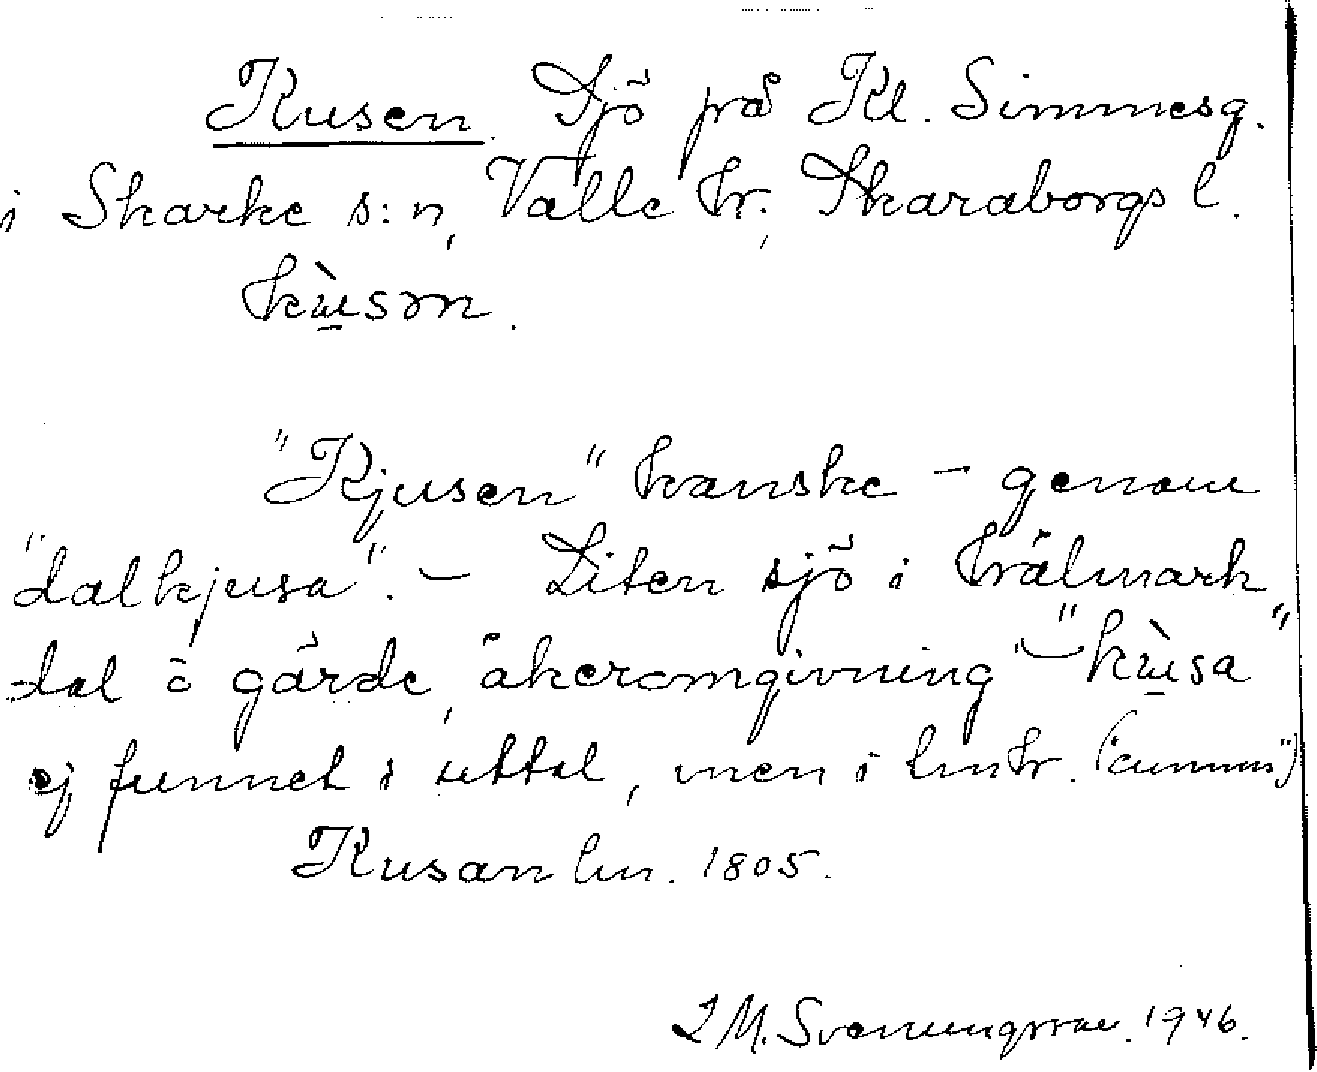 Kusen. Sjö på Kl. Simmesg.
i Skarke s:n, Valle hr., Skaraborgs l.
kùsən.
"Kjusen" kanske – genom
"dalkjusa". – Liten sjö i
dal o gärde, åkeromgivning – "kùsa"
ej funnet i uttal, men i lmhr. ("cunnus")
Kusan lm. 1805.
L M. Svenungsson. 1946.